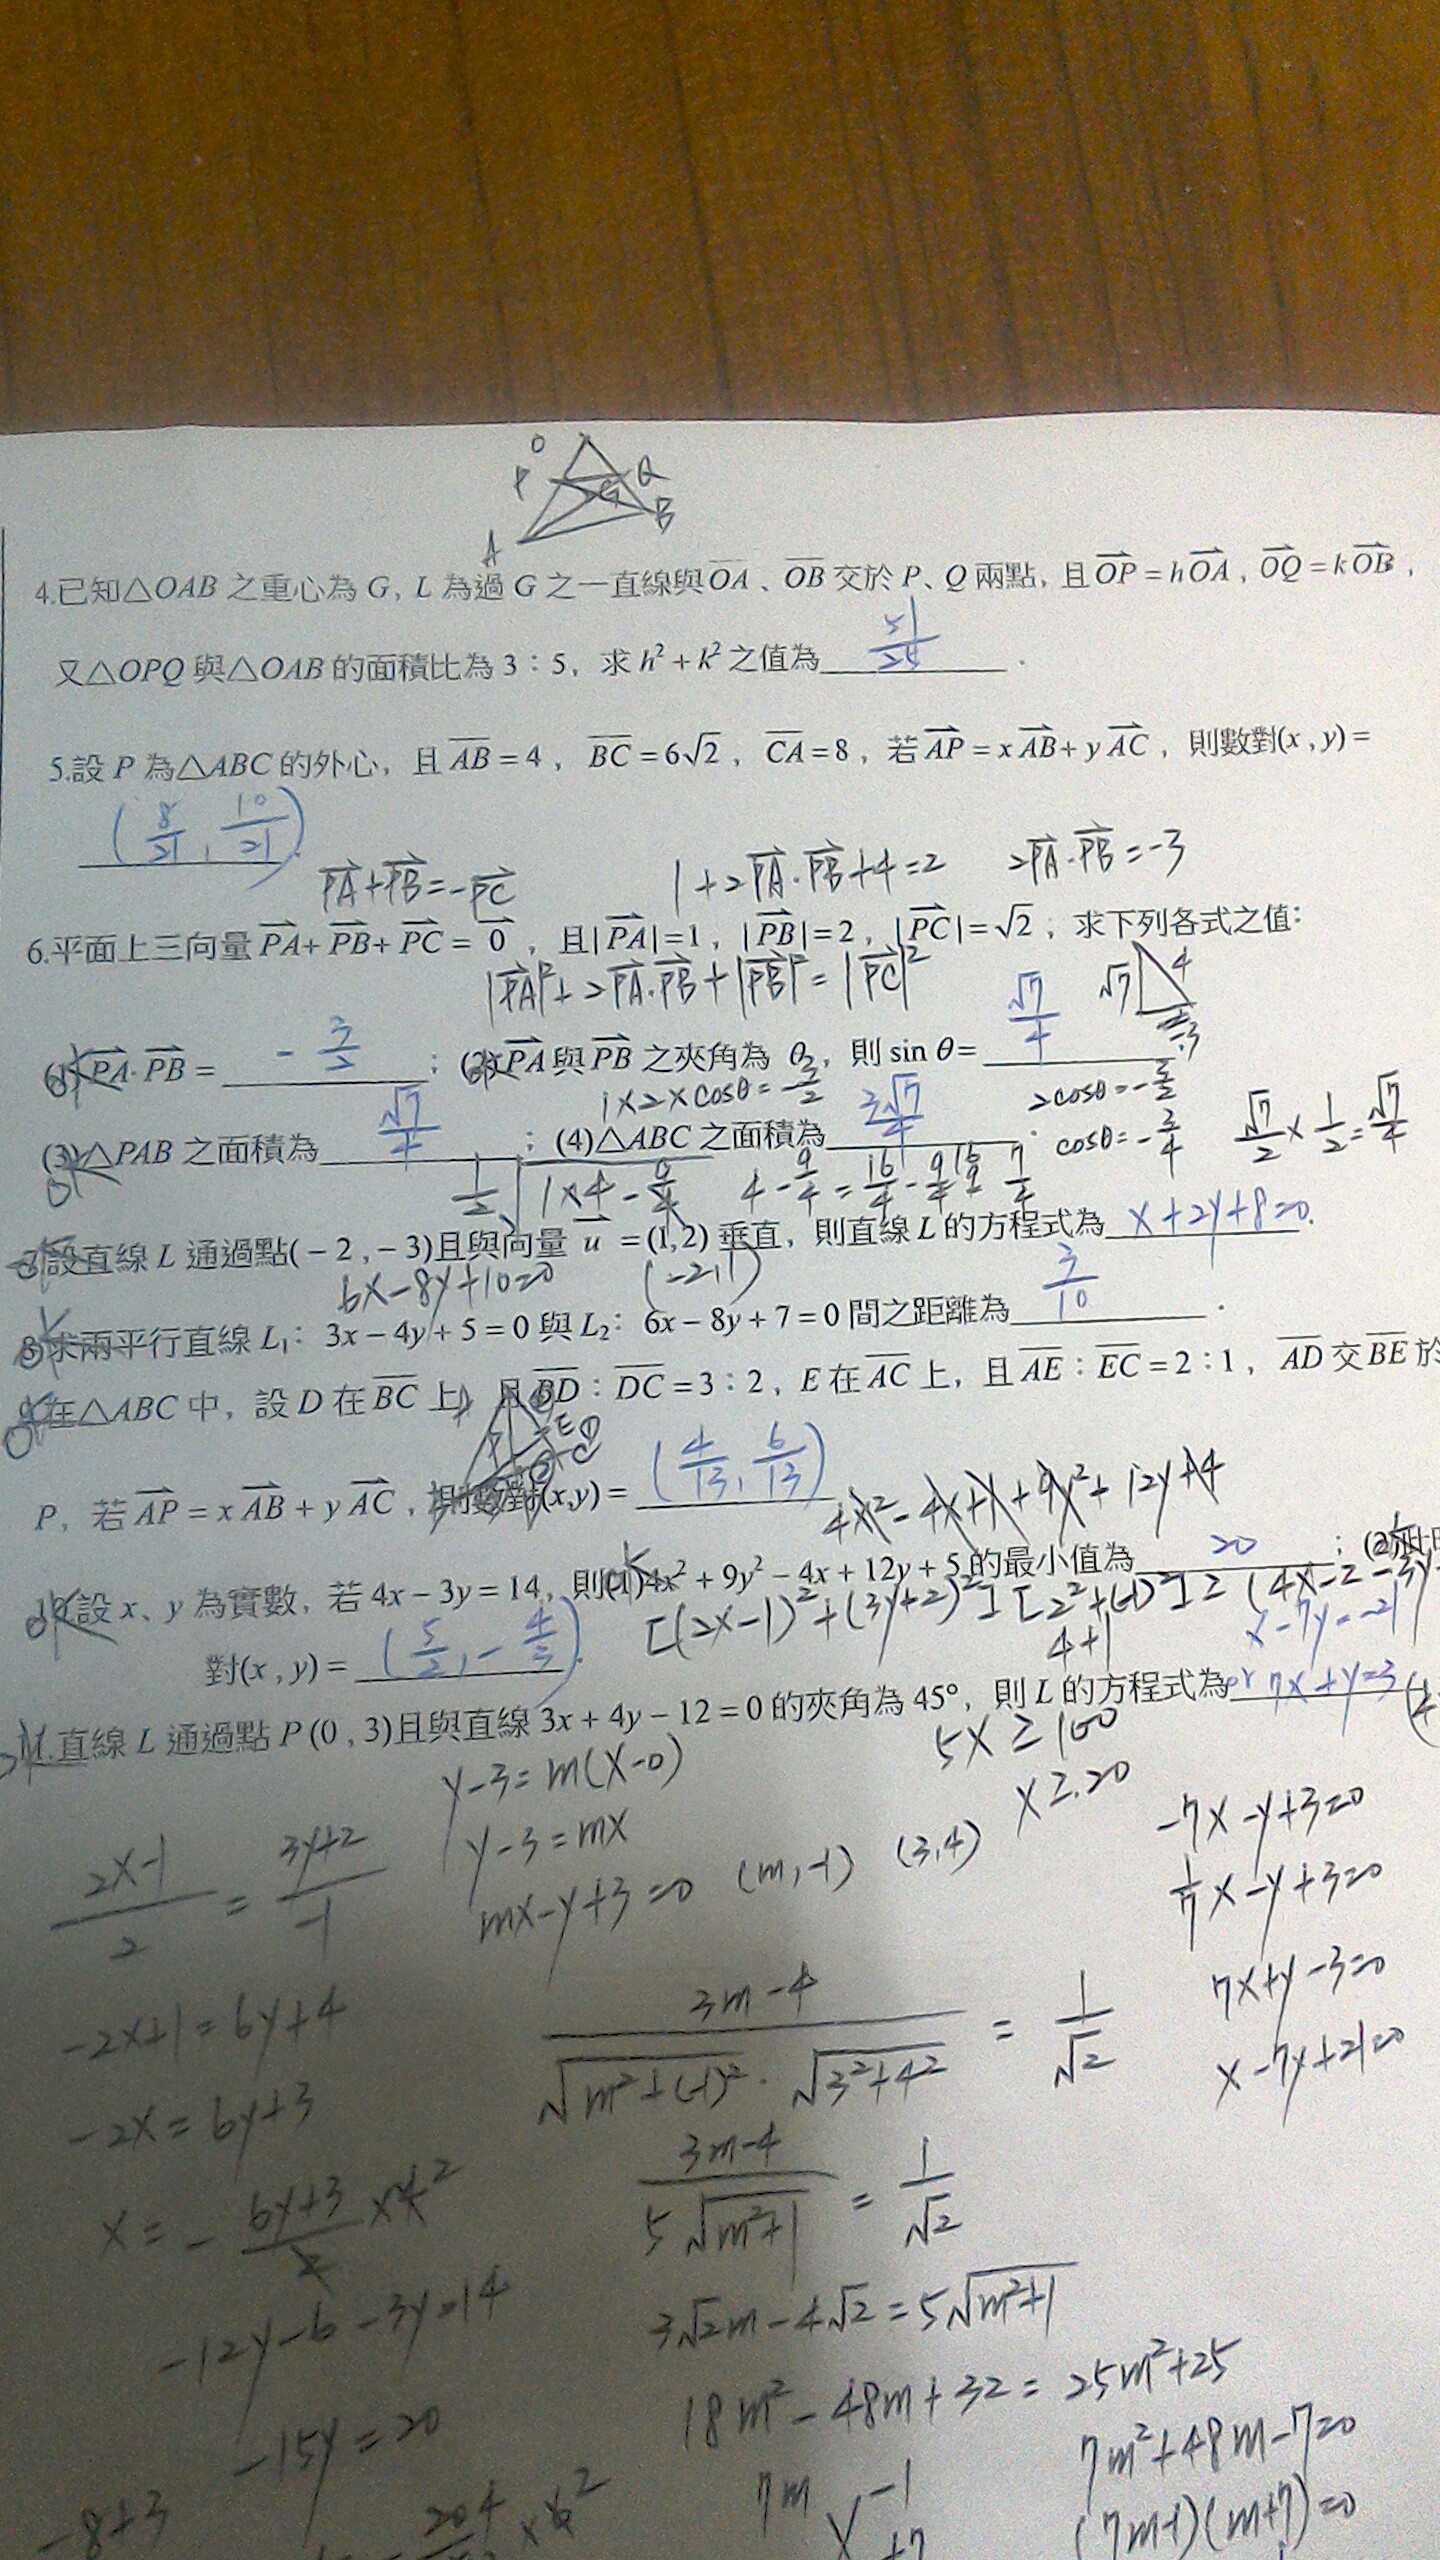 O
P Q
G
A B
4.已知△OAB 之重心為 G, L 為過 G 之一直線與OA、OB 交於 P、Q 兩點, 且 OP = hOA, OQ = kOB,
又△OPQ 與△OAB 的面積比為 3:5, 求 h² + k² 之值為 51/25.
5.設 P 為△ABC 的外心, 且 AB = 4, BC = 6√2, CA = 8, 若 AP = x AB + y AC, 則數對(x, y) =
(8/21, 10/21).
PA + PB = -PC 1+2PA·PB+4=2 2PA·PB=-3
6.平面上三向量 PA + PB + PC = 0, 且|PA|=1, |PB|=2, |PC|=√2; 求下列各式之值:
|PA|²+2PA·PB+|PB|²=|PC|² √7 4
(1) PA·PB = -3/2; (2) PA 與 PB 之夾角為 θ, 則 sin θ = √7/4
1×2×cosθ=-3/2 2cosθ=-3/2
(3)△PAB 之面積為 √7/4; (4)△ABC 之面積為 3√7/4. cosθ=-3/4 √7/2×1/2=√7/4
1/2 √1×4-9/4 4-9/4=16/4-9/4= 7/4
7.設直線 L 通過點(-2, -3)且與向量 u = (1,2) 垂直, 則直線 L 的方程式為 x+2y+8=0.
6x-8y+10=0 (-2,1)
8.求兩平行直線 L₁: 3x - 4y + 5 = 0 與 L₂: 6x - 8y + 7 = 0 間之距離為 3/10.
9.在△ABC 中, 設 D 在 BC 上, 且 BD : DC = 3:2, E 在 AC 上, 且 AE : EC = 2:1, AD 交 BE 於
P, 若 AP = x AB + y AC, 則數對(x,y) = (4/13, 6/13)
4x²-4x+1+9y²+12y+4
10.設 x、y 為實數, 若 4x - 3y = 14, 則(1)4x² + 9y² - 4x + 12y + 5 的最小值為 20; (2)此時
[(2x-1)²+(3y+2)²][2²+(-1)²]≥(4x-2-3y-
對(x, y) = (5/2, -4/3). 4+1 x-7y=-21
11.直線 L 通過點 P (0, 3)且與直線 3x + 4y - 12 = 0 的夾角為 45°, 則 L 的方程式為 or 7x+y=3
5x≥100
y-3=m(x-0) x≥20
y-3=mx -7x-y+3=0
mx-y+3=0 (m,-1) (3,4) 1/7x-y+3=0
(2x-1)/2 = (3y+2)/-1
-2x+1=6y+4 (3m-4)/(√m²+(-1)²·√3²+4²) = 1/√2 7x+y-3=0
x-7y+21=0
-2x=6y+3 (3m-4)/(5√m²+1) = 1/√2
x=-(6y+3)/2 ×4 2
-12y-6-3y=14 3√2m-4√2=5√m²+1
-15y=20 18m²-48m+32=25m²+25
7m²+48m-7=0
-8+3 7m -1 (7m-1)(m+7)=0
+7